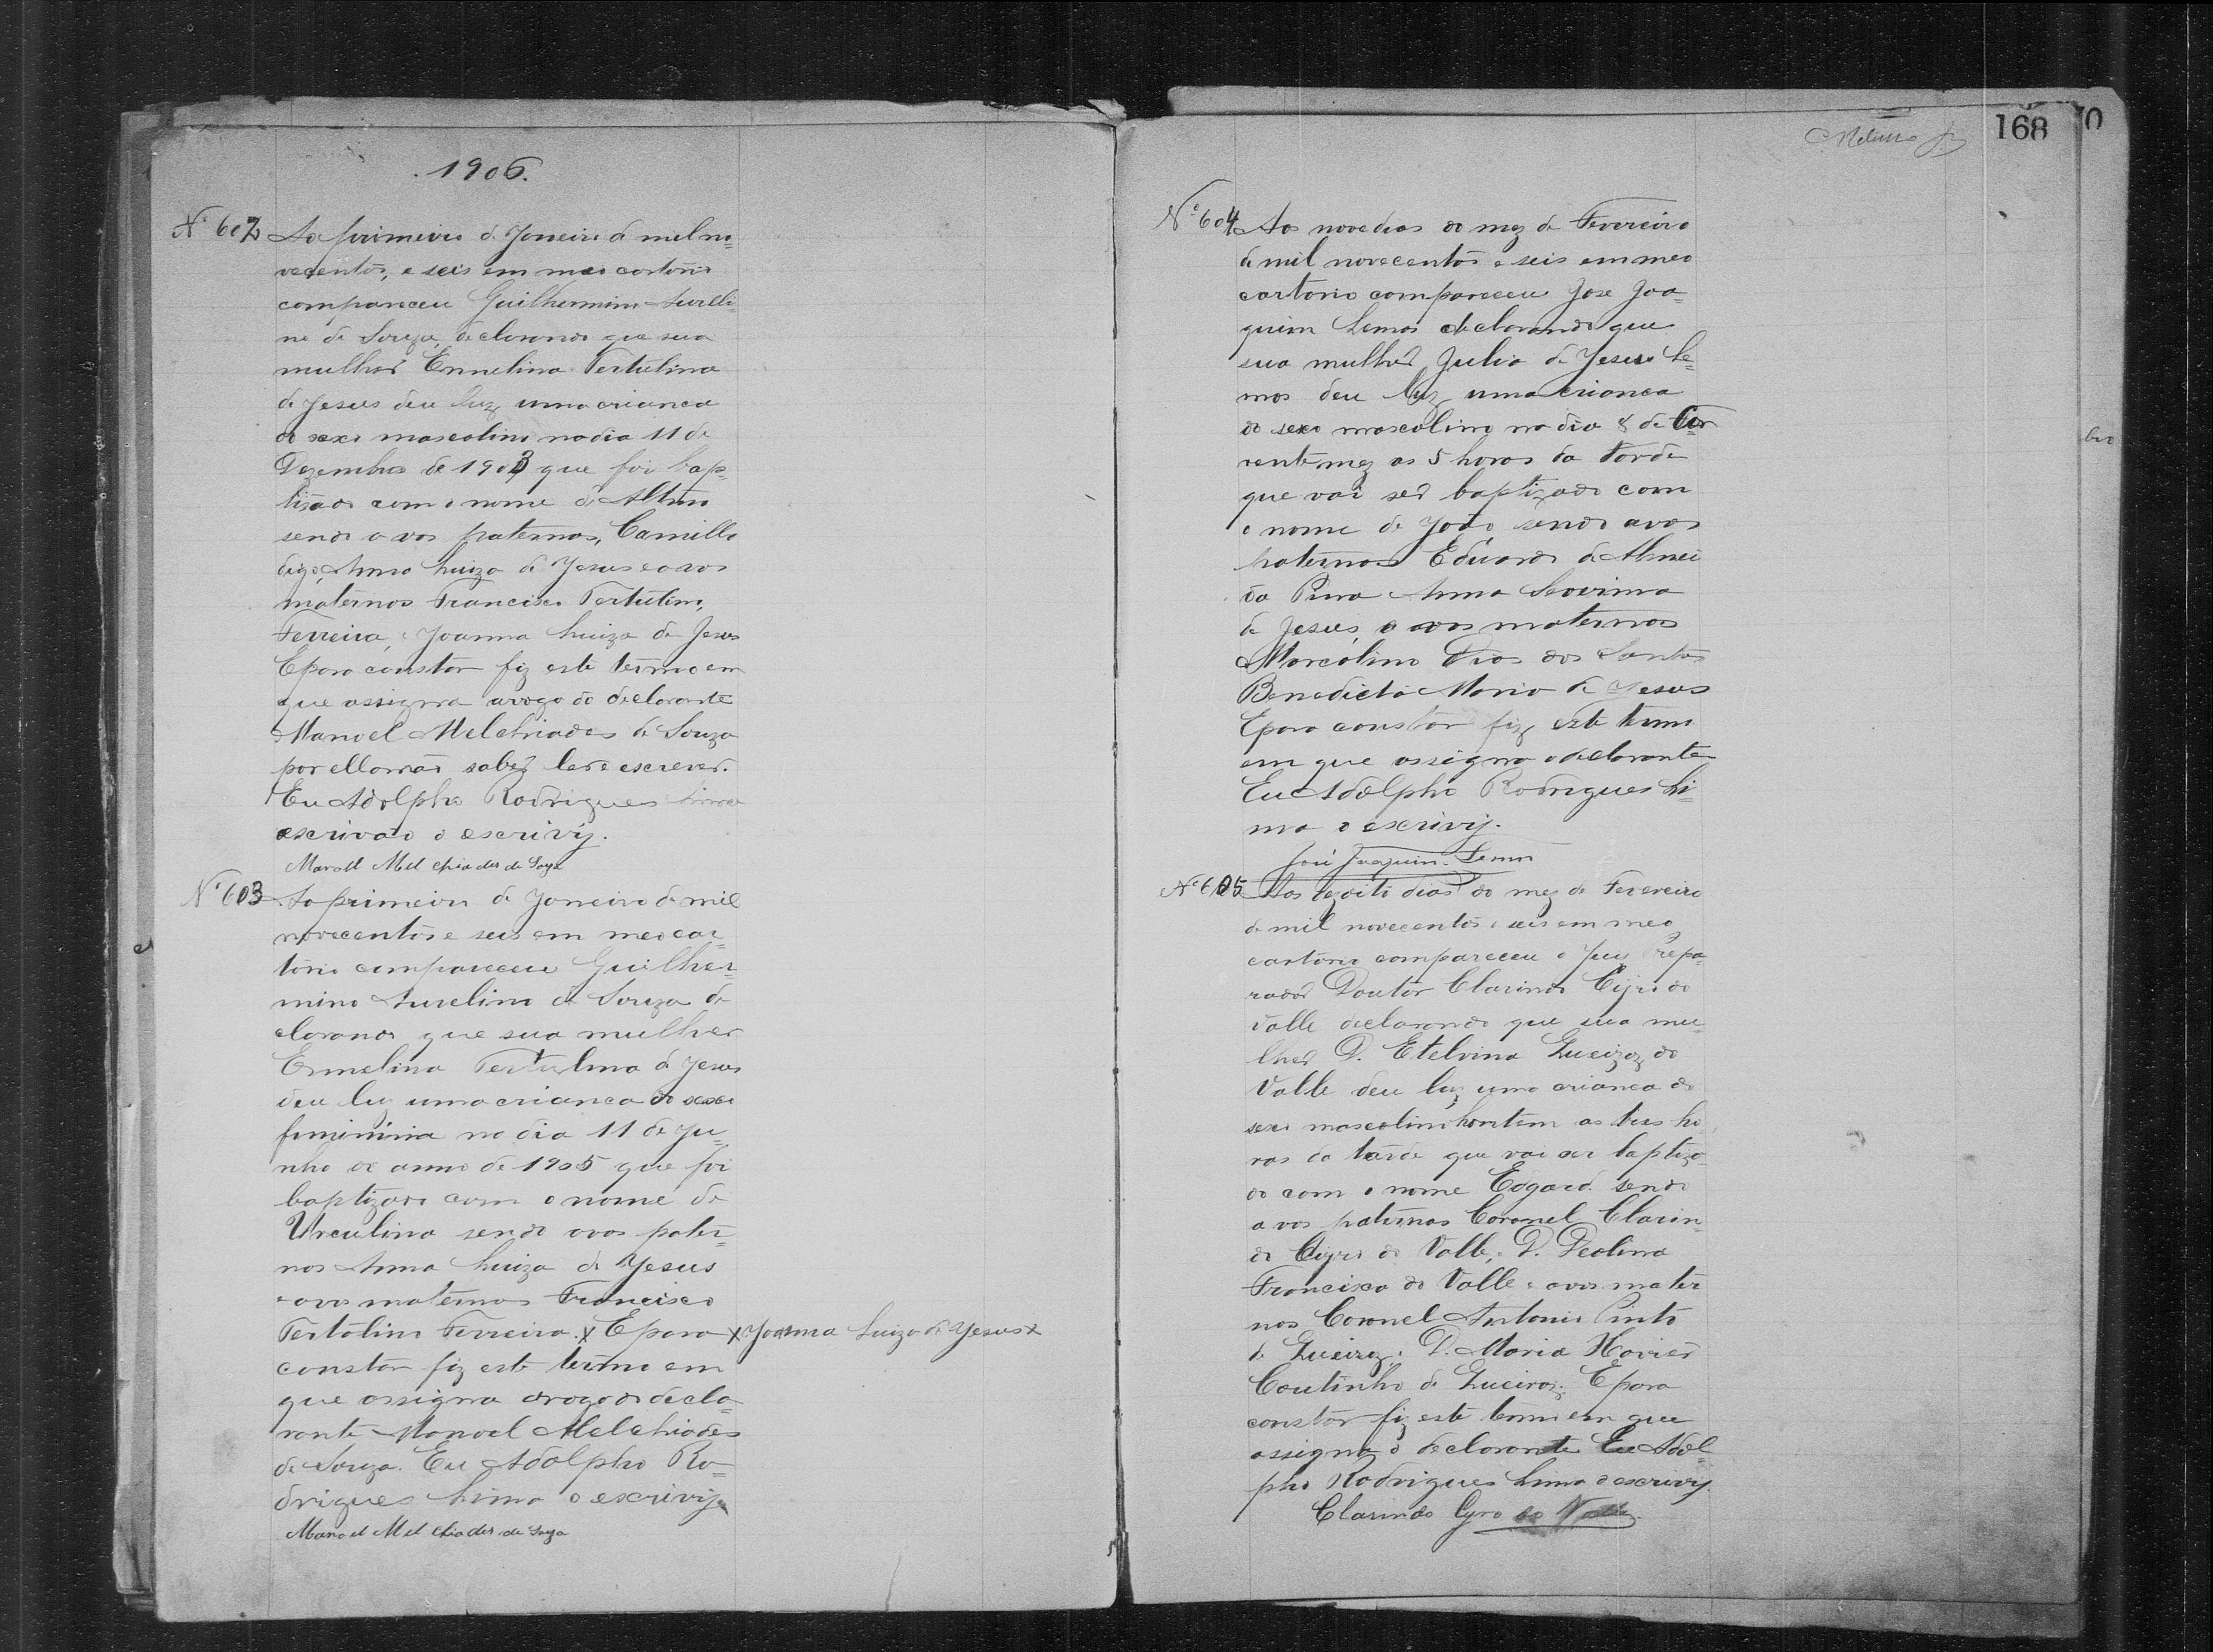 1906.
Nº 602 Ao primeiro de Janeiro de mil no=
vecentos, e seis em meo cartorio
compareceu Guilhermino Aureli=
no de Souza, declarando que sua
mulher Ermelina Tertulina
de Jesus deu luz uma crianca
do sexo mascolino no dia 11 de
Dezembro de 1903 que foi bap=
tisado com o nome de
sendo avos paternos, Camillo
digo, Anna Luiza de Jesus e avos
maternos Francisco Tertulino,
Ferreira, e Joanna Luiza de Jesus
E para constar fiz este termo em
que assigna arogo do declarante
Manoel Melchiades de Souza
por elle não saber ler e escrever.
Eu Adolpho Rodrigues Lima
escrivão o escrivij.
Manoel Melchiades de Soza
Nº 603 Ao primeiro de Janeiro de mil
novecentos e seis em meo car=
torio compareceu Guilher=
mino Aurelino de Souza de
clarando que sua mulher
Ermelina Tertulina de Jesus
deu luz uma crianca do sexo
feminina no dia 11 de Ju=
nho do anno de 1905 que foi
baptizado com o nome de
Urculina sendo avos pater=
nos Anna Luiza de Jesus
e avos maternos Francisco
Tertolino Ferreira. x E para x Joanna Luiza de Jesus x
constar fiz este termo em
que assigna arogo do decla=
rante Manoel Melchiades
de Souza. Eu Adolpho Ro=
drigues Lima o escrivij.
Manoel Melchiades de Soza
168
Nº 604 Aos nove dias do mez de Fevereiro
de mil novecentos e seis em meo
cartorio compareceu Jose Joa=
quim Lemos declarando que
sua mulher Julia de Jesus Le=
mos deu luz uma crianca
do sexo mascolino no dia 8 de Cor
rente mez as 5 horas da tarde
que vai ser baptizado com
o nome de João, sendo avos
paternos Eduardo de Almei
da Pina Anna Severina
de Jesus, e avos maternos
Marcolino Dias dos Santos
Benedicta Maria de Jesus
E para constar fiz este termo
em que assigna o declarante
Eu Adolpho Rodrigues Li=
ma o escrivij.
José Joaquim Lemos
Nº 605 Aos dezoito dias do mez de Fevereiro
de mil novecentos e seis em meo
cartorio compareceu o Juiz Prepa=
rador Doutor Clarindo Cyro do
Valle declarando que sua mu=
lher D. Etelvina Queiroz do
Valle deu luz uma crianca do
sexo mascolino hontem as tres ho
ras da tarde que vai ser baptiza=
do com o nome Edgard sendo
avos paternos Coronel Clarin=
do Cyro do Valle, D. Deolina
Francisca do Valle e avos mater
nos Coronel Antonio Pinto
de Queiroz, D. Maria Xavier
Coutinho de Queiroz. E para
constar fiz este termo em que
assigna o declarante Eu Adol=
pho Rodrigues Lima o escrivij
Clarindo Cyro do Valle.